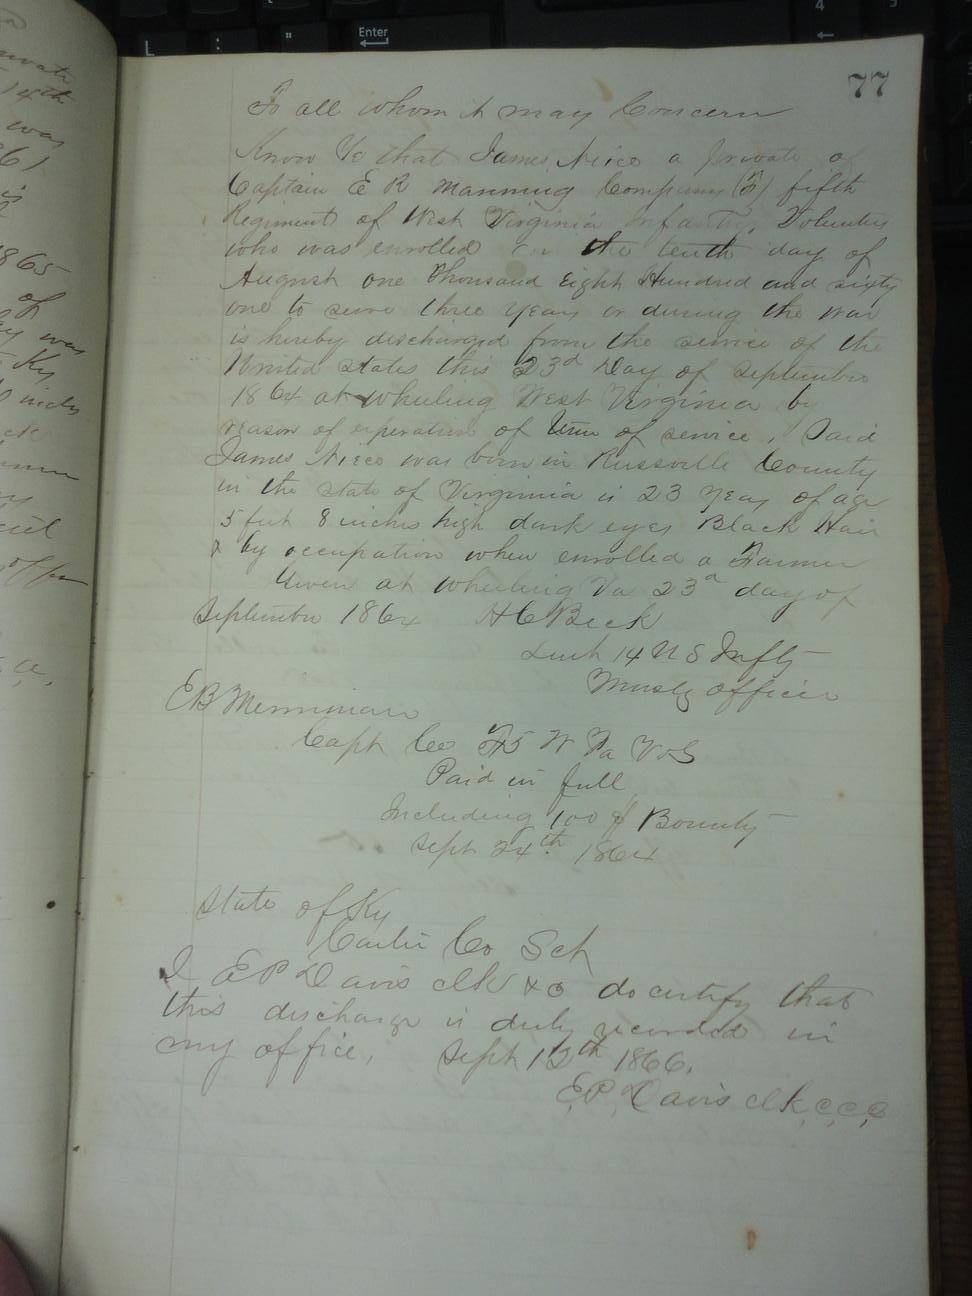 77
To all whom it may Concern
Know Ye that James Nieco a private of
Captain E R Manning Company (F) fifth
Regiment of West Virginia Infantry, Volunteers
who was enrolled on the tenth day of
August one Thousand Eight Hundred and sixty
one to serve three years or during the war
is hereby discharged from the service of the
United states this 23d Day of september
1864 at wheeling West Virginia by
reason of experation of term of service, Said
James Nieco was born in Russville County
in the state of Virginia is 23 years of age
5 feet 8 inches high dark eyes Black Hair
& by occupation when enrolled a Farmer
Given at wheeling Va 23d day of
September 1864 H C Beck
14 U S Infty
officer
Capt Co F 5 W Va Vols
Paid in full
Including 100 $ Bounty
Sept 24th 1864
State of Ky
Carter Co Sct
I E P Davis clk &c do certify that
this discharge is duly recorded in
my office, Sept 12th 1866.
E,P, Davis clk, c, c, c
private
14th
was
61
1865
of
was
Ky
inches